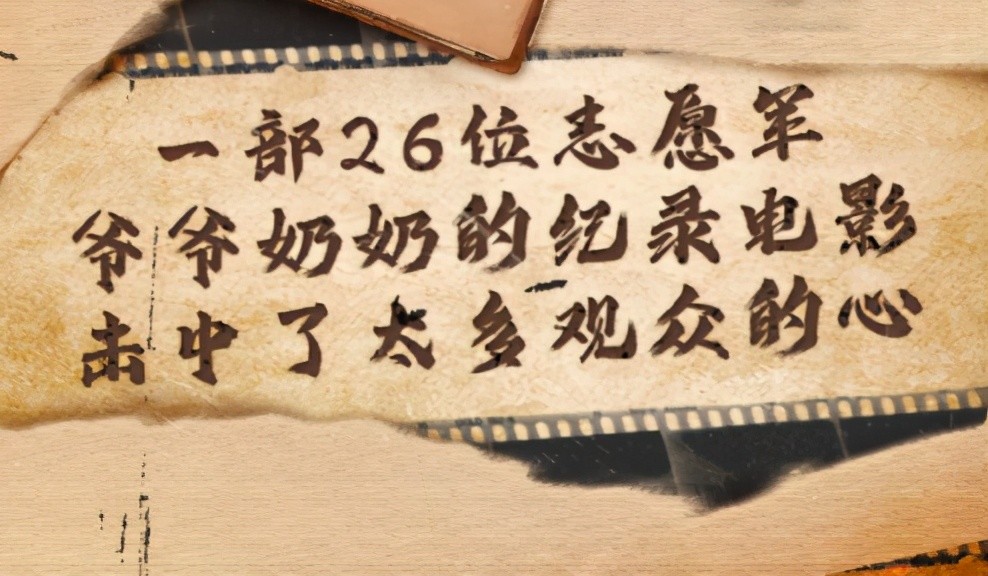 一部26位志愿军
爷爷奶奶的纪录电影
击中了太多观众的心